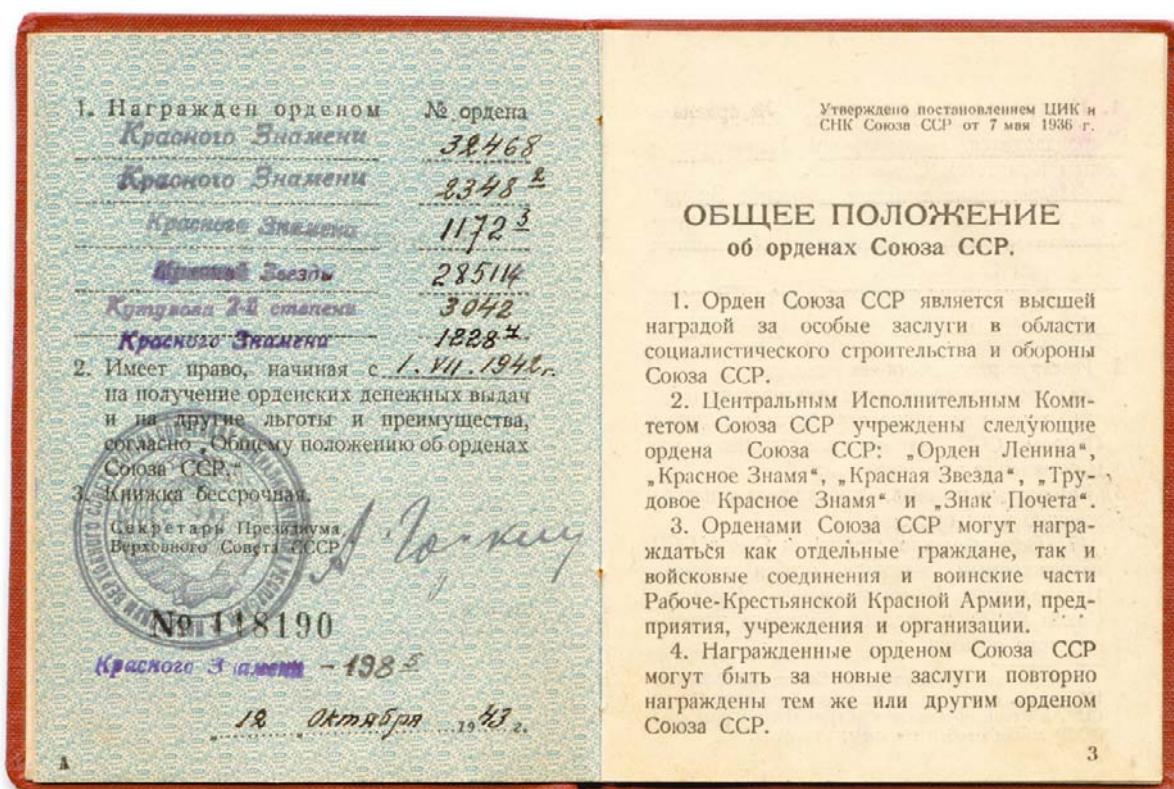 1. Награжден орденом № ордена
Красного Знамени 32468
Красного Знамени 2348 2
Красного Знамени 1172 3
Красной Звезды 285114
Кутузова 2-й степени 3042
Красного Знамени 1828 4
2. Имеет право, начиная с 1. VII. 1942 г.
на получение орденских денежных выдач
и на другие льготы и преимущества,
согласно „Общему положению об орденах
Союза ССР.“
3. Книжка бессрочная.
Секретарь Президиума
Верховного Совета СССР
№ 118190
Красного Знамени - 198 5
12 Октября 1943 г.
А
Утверждено постановлением ЦИК и
СНК Союза ССР от 7 мая 1936 г.
ОБЩЕЕ ПОЛОЖЕНИЕ
об орденах Союза ССР.
1. Орден Союза ССР является высшей
наградой за особые заслуги в области
социалистического строительства и обороны
Союза ССР.
2. Центральным Исполнительным Коми-
тетом Союза ССР учреждены следующие
ордена Союза ССР: „Орден Ленина“,
„Красное Знамя“, „Красная Звезда“, „Тру-
довое Красное Знамя“ и „Знак Почета“.
3. Орденами Союза ССР могут награ-
ждаться как отдельные граждане, так и
войсковые соединения и воинские части
Рабоче-Крестьянской Красной Армии, пред-
приятия, учреждения и организации.
4. Награжденные орденом Союза ССР
могут быть за новые заслуги повторно
награждены тем же или другим орденом
Союза ССР.
3